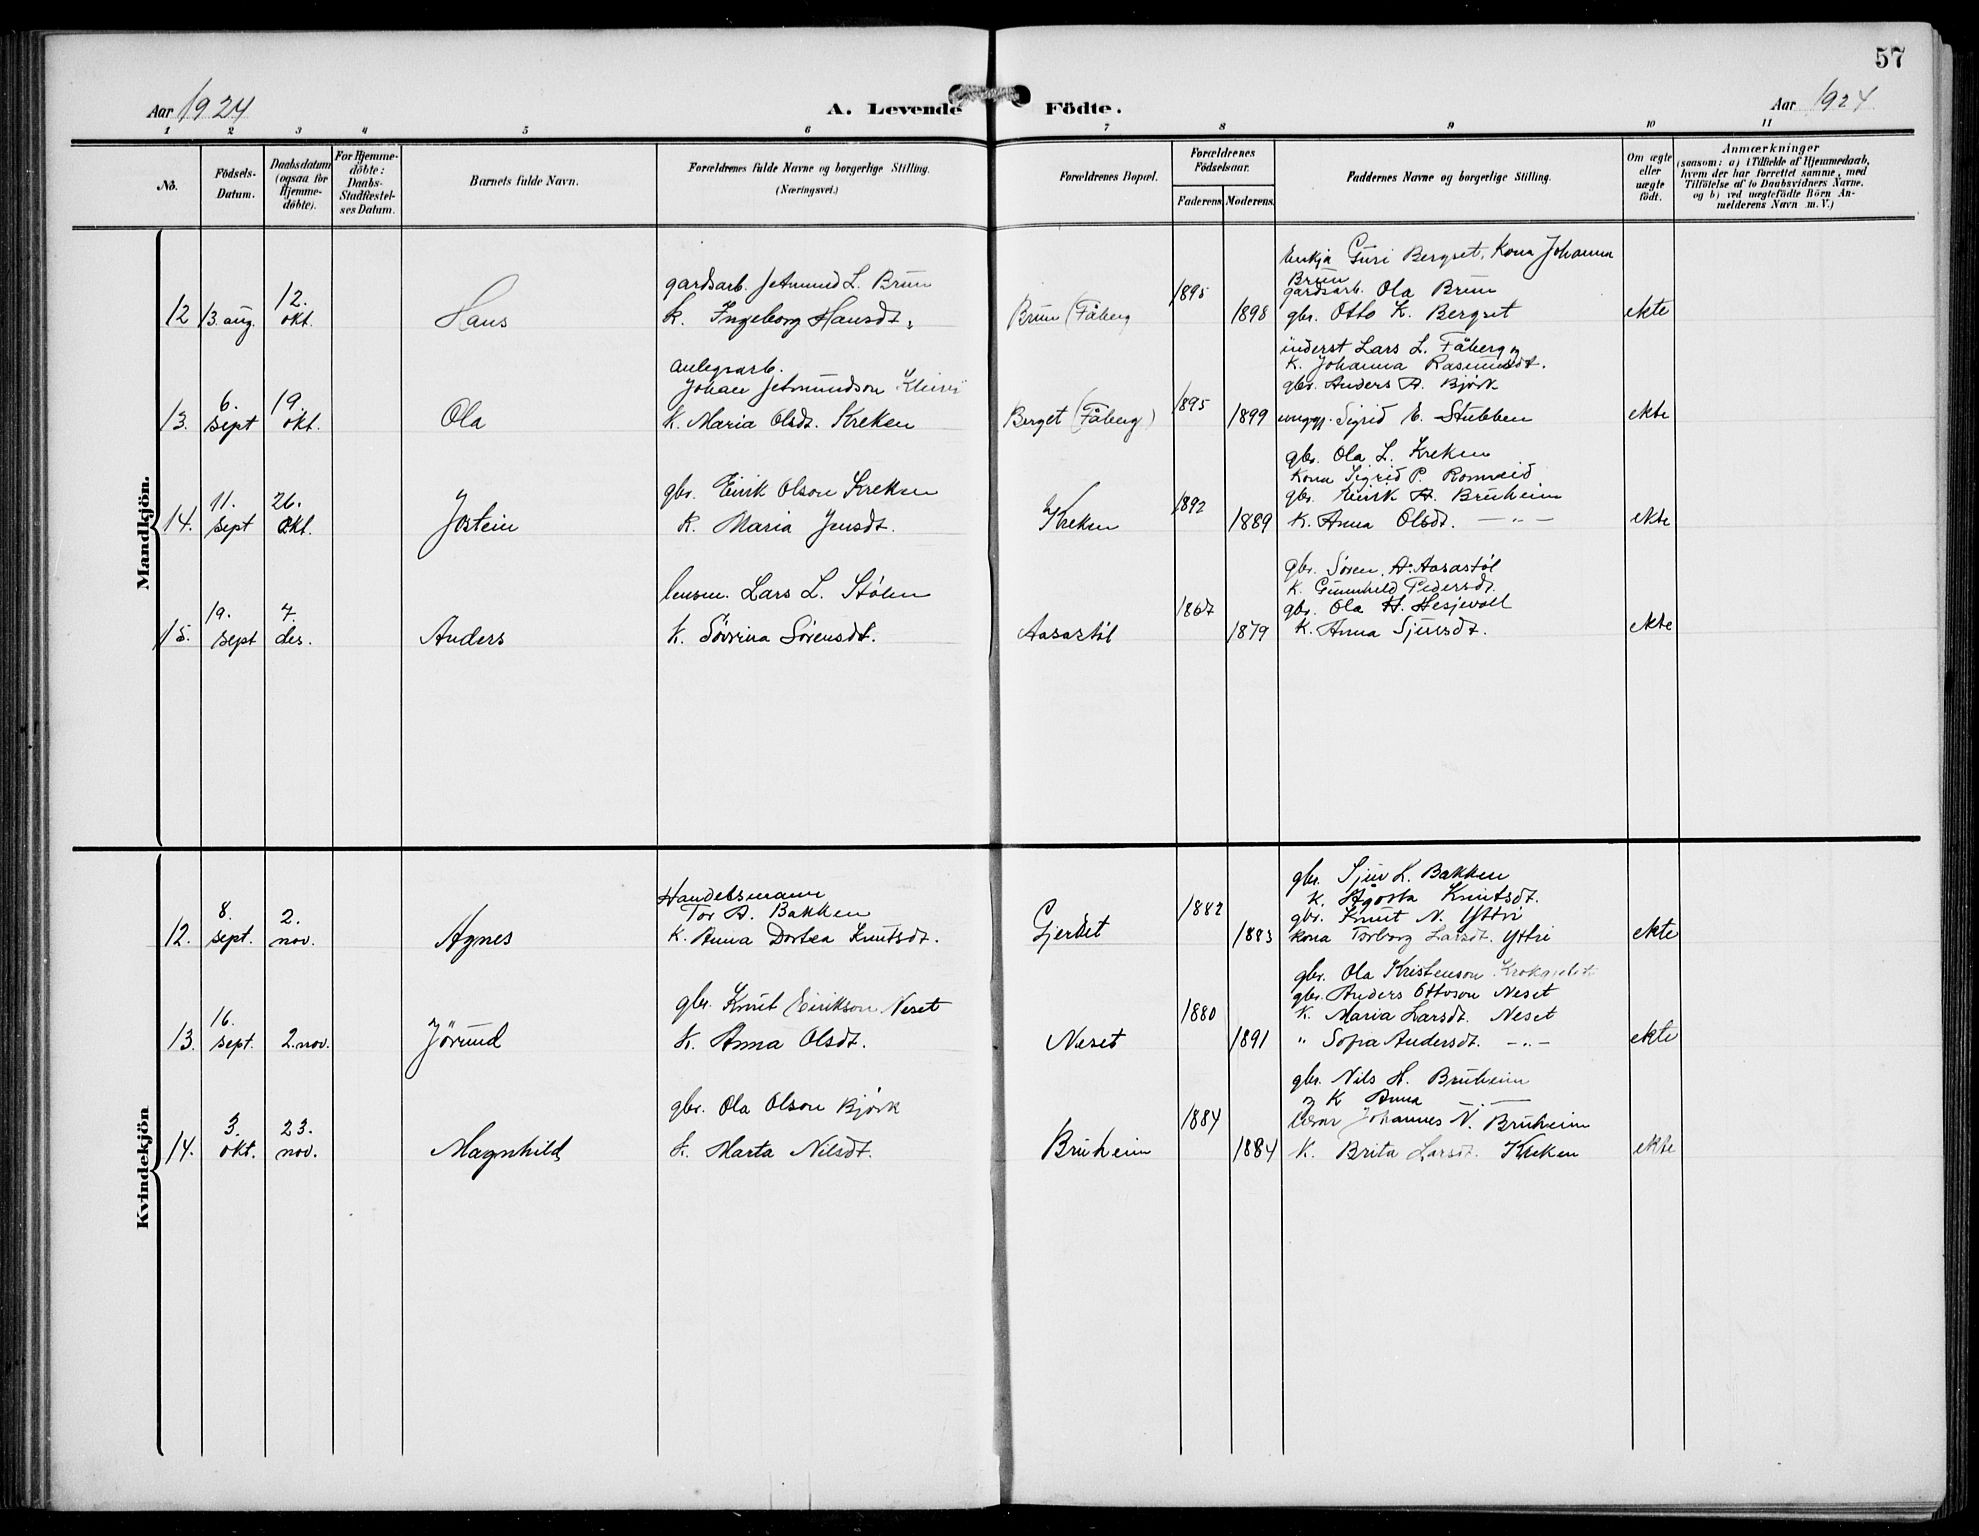 57
Aar 1924
A. Levende Födte.
Aar 1924
1 2 3 4 5 6 7 8 9 10 11
No.
Födsels-Datum.
Daabsdatum (ogsaa for Hjemme-döbte).
For Hjemme-döbte: Daabs-Stadfæstel-ses Datum.
Barnets fulde Navn.
Forældrenes fulde Navne og borgerlige Stilling. (Næringsvei.)
Forældrenes Bopæl.
Forældrenes Födselsaar.
Faderens Moderens
Faddernes Navne og borgerlige Stilling.
Om ægte eller uægte födt.
Anmærkninger
(saasom: a) i Tilfælde af Hjemmedaab,
hvem der har forrettet samme, med
Tilföielse af to Daabsvidners Navne.
og b) ved uægtefödte Börn An-
melderens Navn m. V.)
Mandkjön.
Enkja Guri Bergset, Kona Johanna
Brun
gardsarb. Jetmund L. Brun 1895 gardsarb. Ola Brun
12 13. aug. 12. okt. Hans k. Ingeborg Hansdt. Brun (Fåberg 1898 gbr. Otto K. Bergset ekte
inderst Lars L. Fåberg og
anlegsarb. K. Johanna Rasmusdt.
Johan Jetmundson 1895 gbr. Anders A. Bjørk
13. 6. sept 19. okt. Ola K. Maria Olsdt. Kreken Berget (Fåberg) 1899 ungpj. Sigrid E. Stubben ekte
gbr. Ola L. Kreken
Kona Sigrid P. Romreid
gbr. Eirik Olson Kreken 1892 gbr. Eirik A. Bruheim
14. 11. sept 26. okt. Jostein K. Maria Jensdt. Kreken 1889 K. Anna Olsdt. — " — ekte
gbr. Søren A. Aasastøl
K. Gunnhild Pedersdt.
Lars L. Stølen 1867 gbr. Ola H. Hesjevoll
15. 19. sept 7. des. Anders K. Søvrina Sørensdt. Aasastøl 1879 K. Anna Sjursdt. ekte
Kvindekjön
gbr. Sjur K. Bakken
Handelsmann K. Ågåta Knutsdt.
Tor A. Bakken 1882 gbr. Knut N. Yttri
12. 8. sept. 2. nov. Agnes K. Anna Dortea Knutsdt. Gjerdet 1883 kona Torborg Larsdt. Yttri ekte
gbr. Ola Kristenson
gbr. Knut Eirikson Neset 1880 gbr. Anders Ottoson Neset
K. Maria Larsdt. Neset
13. 16. sept. 2. nov. Jørund K. Anna Olsdt. Neset 1891 " Sofia Andersdt. — " — ekte
gbr. Nils H. Bruheim
og K Anna — " —
gbr. Ola Olson Bjørk 1884 Johannes N. Bruheim
14. 3. okt. 23. nov. Magnhild K. Marta Nilsdt. Bruheim 1884 K. Brita Larsdt. Kreken ekte